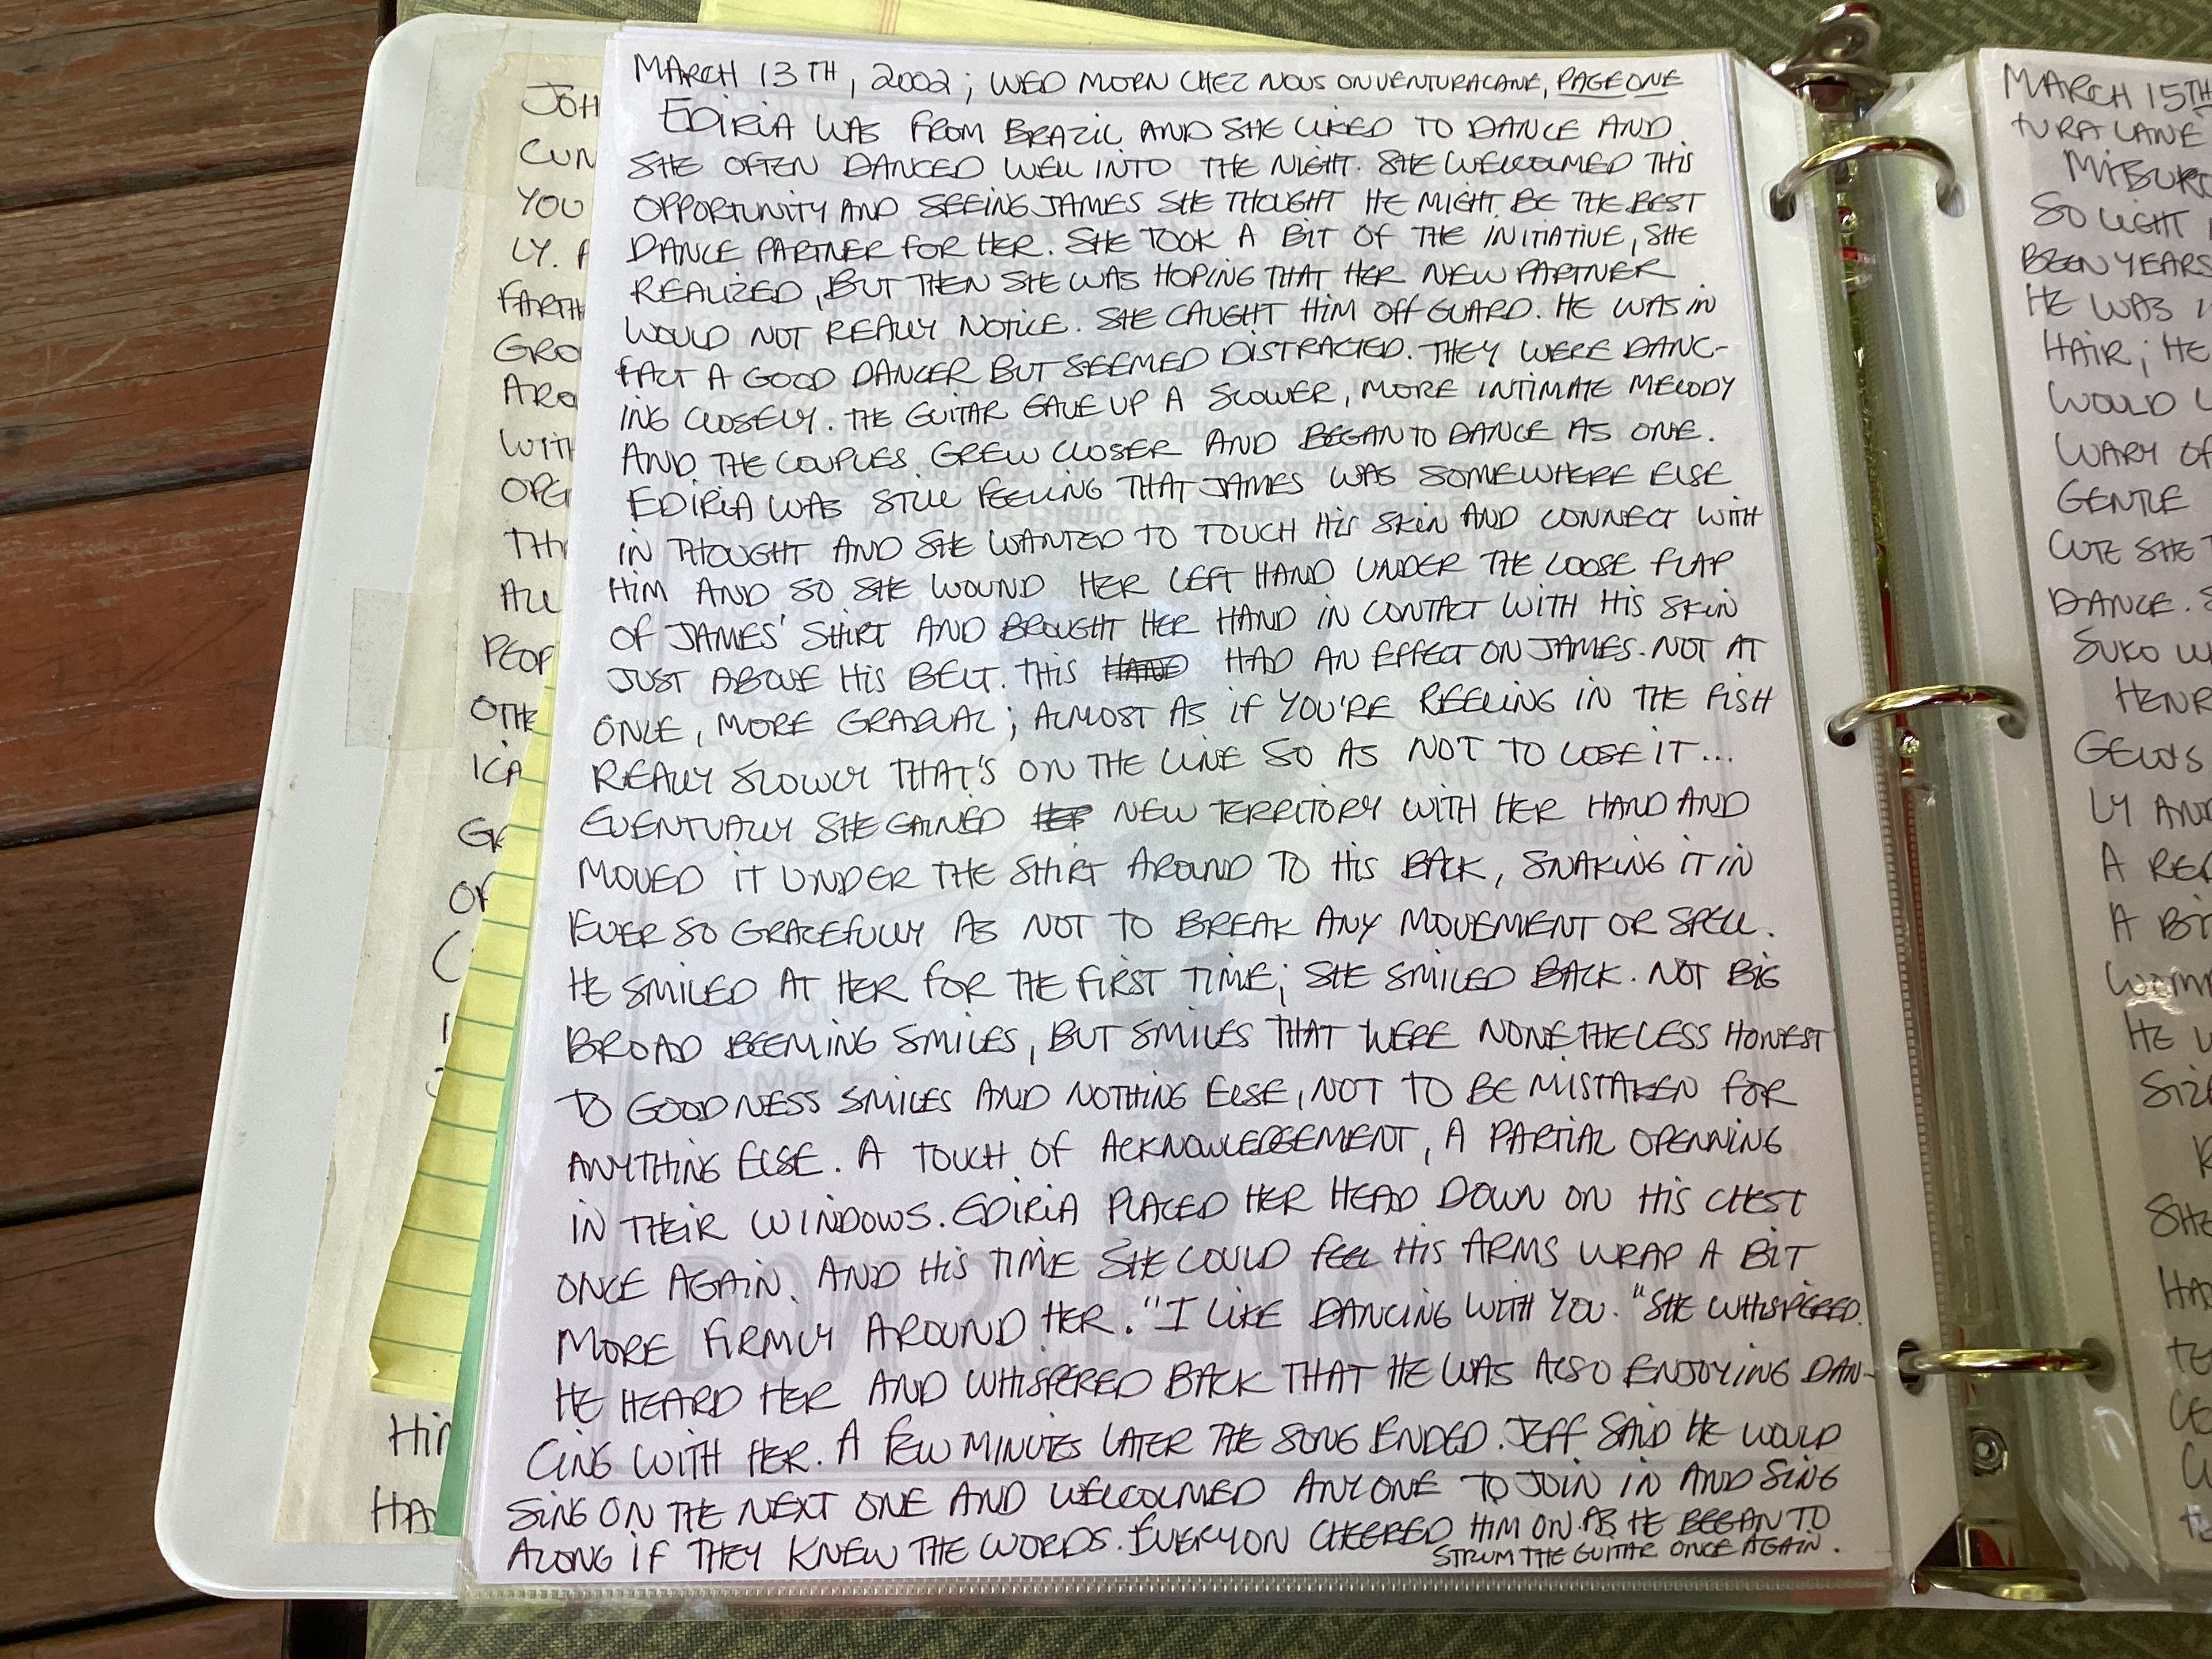 MARCH 13TH, 2002; WED MORN CHEZ NOUS ON VENTURA LANE, PAGE ONE
EDIRIA WAS FROM BRAZIL AND SHE LIKED TO DANCE AND
SHE OFTEN DANCED WELL INTO THE NIGHT. SHE WELCOLMED THIS
OPPORTUNITY AND SEEING JAMES SHE THOUGHT HE MIGHT BE THE BEST
DANCE PARTNER FOR HER. SHE TOOK A BIT OF THE INITIATIVE, SHE
REALIZED, BUT THEN SHE WAS HOPING THAT HER NEW PARTNER
WOULD NOT REALLY NOTICE. SHE CAUGHT HIM OFF GUARD. HE WAS IN
FACT A GOOD DANCER BUT SEEMED DISTRACTED. THEY WERE DANC-
ING CLOSELY. THE GUITAR GAVE UP A SLOWER, MORE INTIMATE MELODY
AND THE COUPLES GREW CLOSER AND BEGAN TO DANCE AS ONE.
EDIRIA WAS STILL FEELING THAT JAMES WAS SOMEWHERE ELSE
IN THOUGHT AND SHE WANTED TO TOUCH HIS SKIN AND CONNECT WITH
HIM AND SO SHE WOUND HER LEFT HAND UNDER THE LOOSE FLAP
OF JAMES' SHIRT AND BROUGHT HER HAND IN CONTACT WITH HIS SKIN
JUST ABOVE HIS BELT. THIS HAD AN EFFECT ON JAMES. NOT AT
ONCE, MORE GRADUAL; ALMOST AS IF YOU'RE REELING IN THE FISH
REALLY SLOWLY THAT'S ON THE LINE SO AS NOT TO LOSE IT...
EVENTUALLY SHE GAINED NEW TERRITORY WITH HER HAND AND
MOVED IT UNDER THE SHIRT AROUND TO HIS BACK, SNAKING IT IN
EVER SO GRACEFULLY AS NOT TO BREAK ANY MOVEMENT OR SPELL.
HE SMILED AT HER FOR THE FIRST TIME; SHE SMILED BACK. NOT BIG
BROAD BEEMING SMILES, BUT SMILES THAT WERE NONETHELESS HONEST
TO GOODNESS SMILES AND NOTHING ELSE, NOT TO BE MISTAKEN FOR
ANYTHING ELSE. A TOUCH OF ACKNOWLEDGEMENT, A PARTIAL OPENNING
IN THEIR WINDOWS. EDIRIA PLACED HER HEAD DOWN ON HIS CHEST
ONCE AGAIN. AND HIS TIME SHE COULD FEEL HIS ARMS WRAP A BIT
MORE FIRMLY AROUND HER. "I LIKE DANCING WITH YOU." SHE WHISPERED.
HE HEARD HER AND WHISPERED BACK THAT HE WAS ALSO ENJOYING DAN-
CING WITH HER. A FEW MINUTES LATER THE SONG ENDED. JEFF SAID HE WOULD
SING ON THE NEXT ONE AND WELCOLMED ANYONE TO JOIN IN AND SING
ALONG IF THEY KNEW THE WORDS. EVERYON CHEERED HIM ON AS HE BEGAN TO
STRUM THE GUITAR ONCE AGAIN.
JOH
CUN
YOU
LY. A
FARTH
GRO
ARO
WITH
OPE
THE
ALL
PEOP
OTHE
ICA
OF
HIM
HAD
MARCH 15TH
TURA LANE
SO LIGHT
BEEN YEARS
HE WAS
HAIR; HE
WOULD
WARY OF
GENTLE
CUTE SHE
DANCE. S
SUKO W
HENR
GELOS
LY AND
A REA
A BIT
WOM
HE
SIZE
SHE
HA